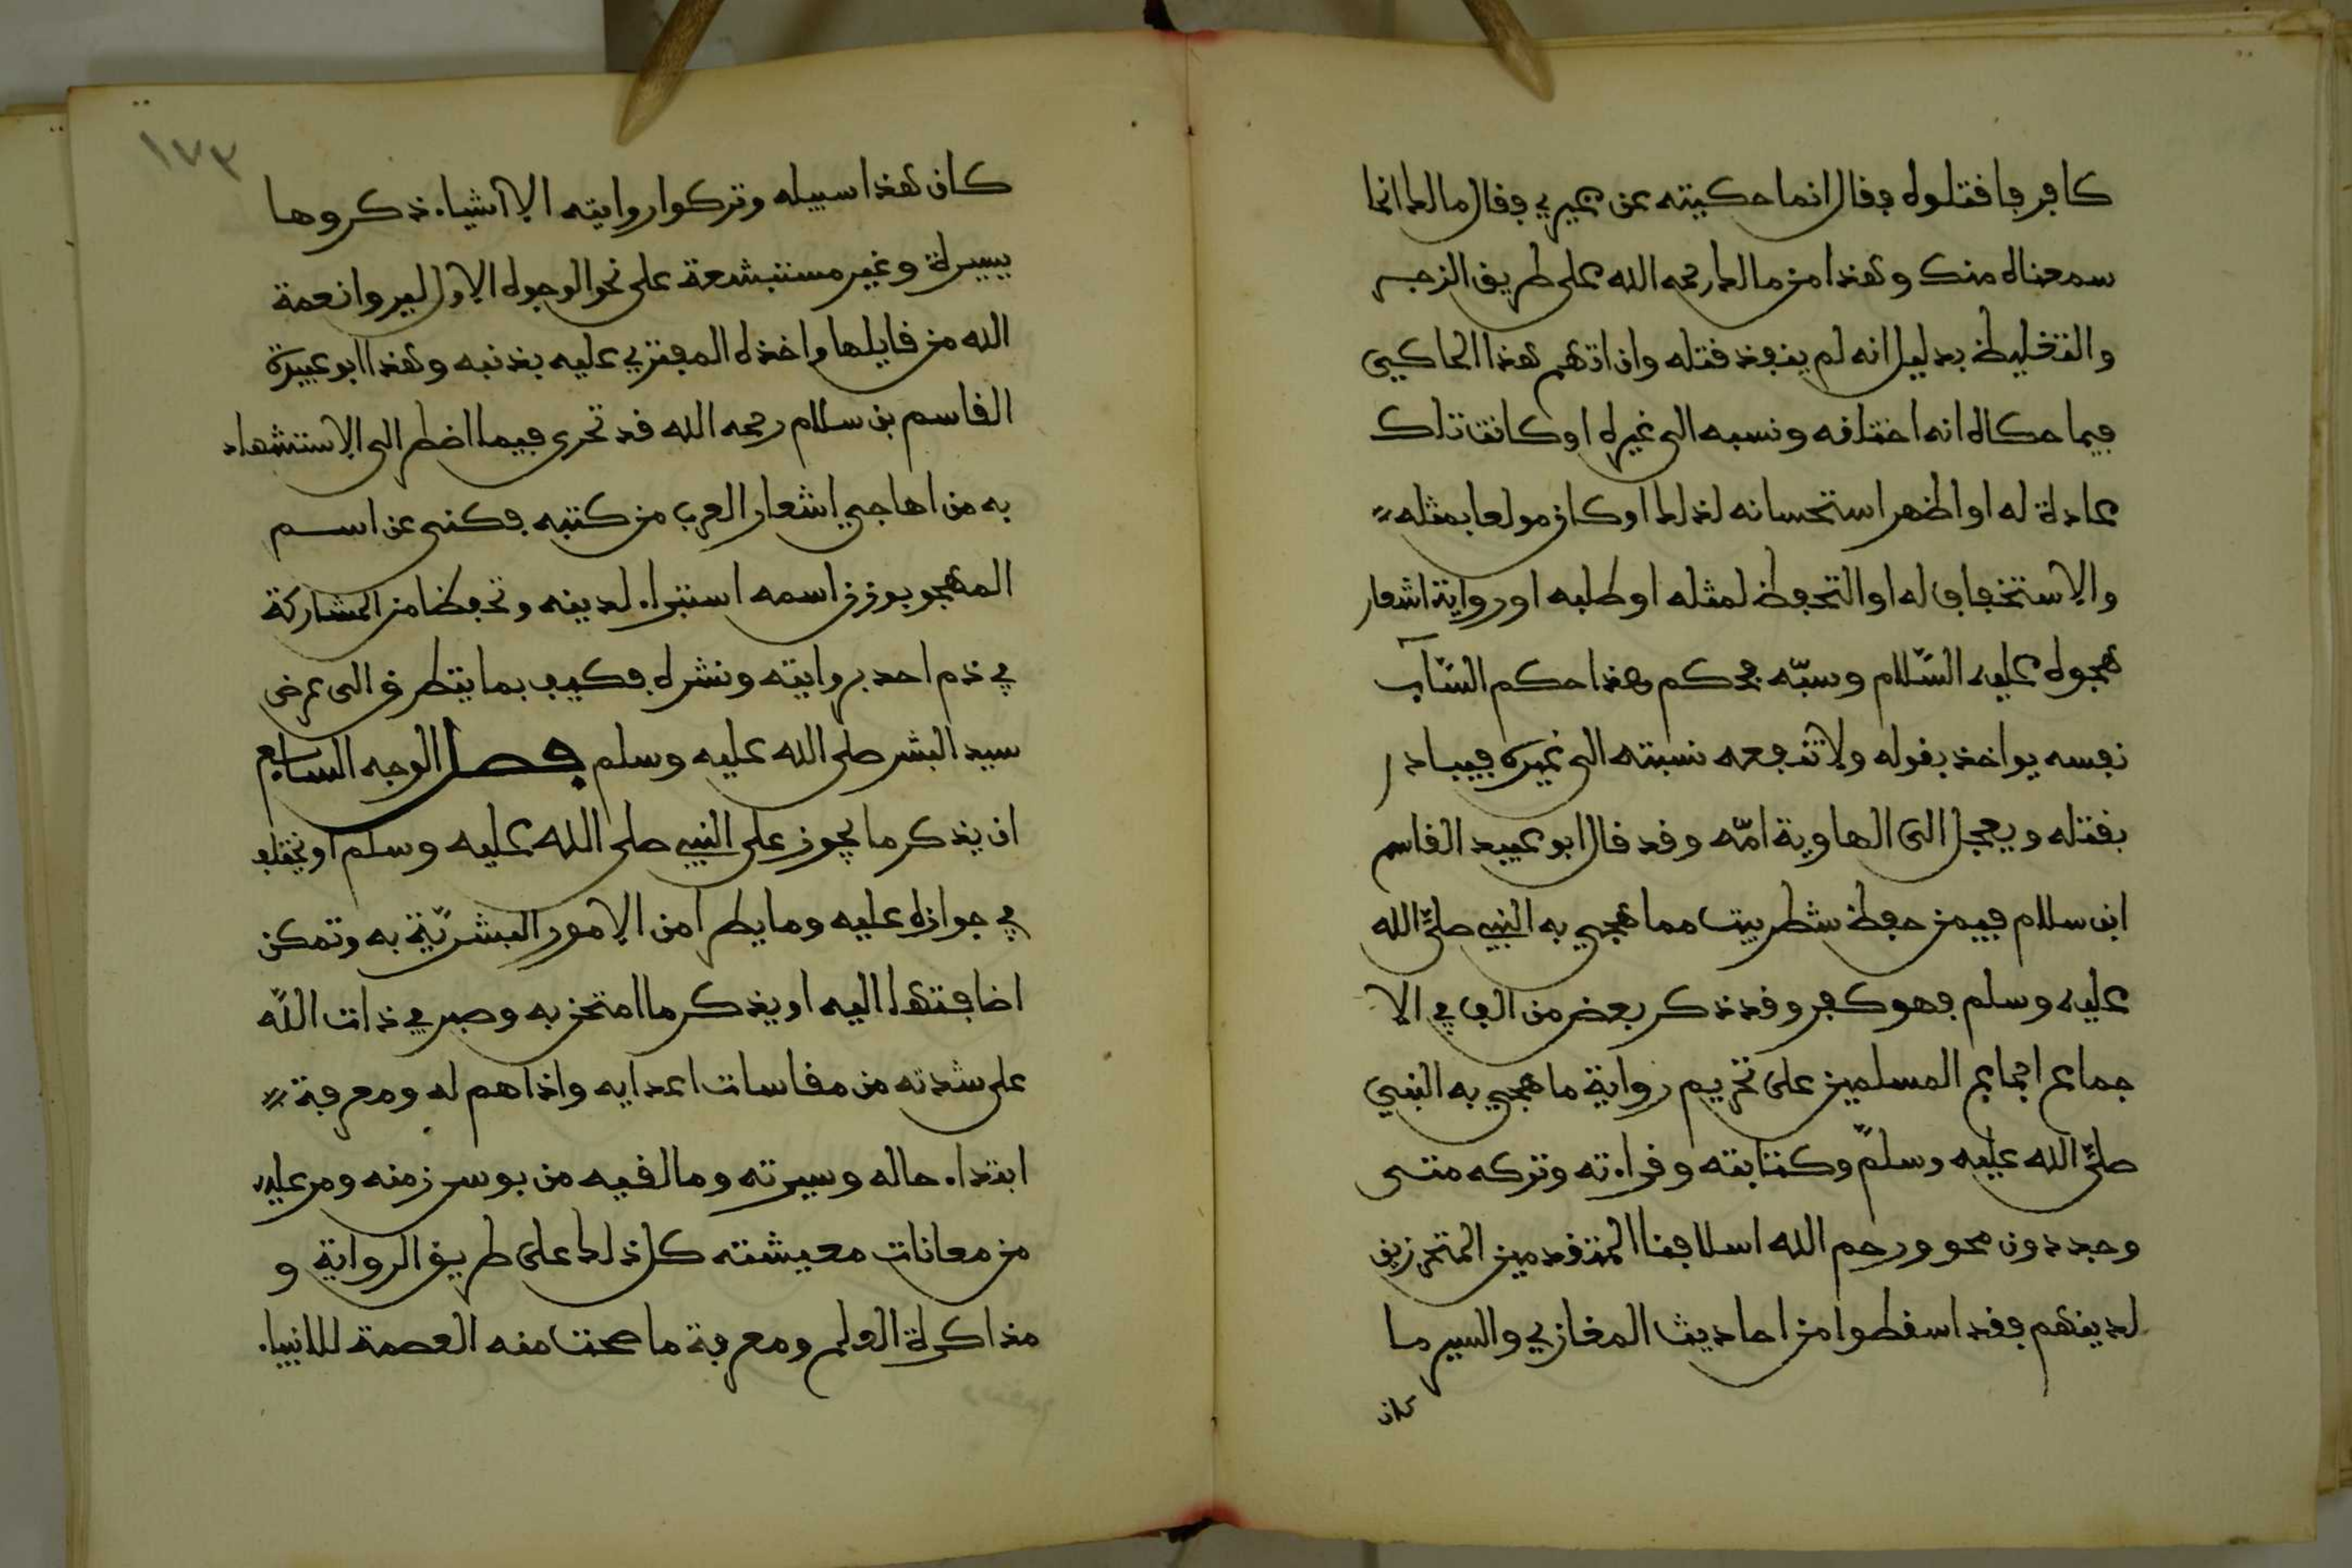 كافر فاقتلوه فقال انما حكيته عن غيري فقال مالك انما
سمعناه منك وهذا من مالك رحمه الله على طريق الزجر
والتغليظ بدليل انه لم ينفذ قتله وان اتهم هذا الحاكي
فيما حكاه انه اختلقه ونسبه الى غيره او كانت تلك
عادة له او اظهر استحسانه لذلك او كان مولعا بمثله
والاستخفاف له او التحفظ لمثله او طلبه او رواية اشعار
هجوه عليه السّلام وسبّه فحكم هذا حكم السّآب
نفسه يواخذ بقوله ولا تنفعه نسبته الى غيره فيبادر
بقتله ويعجل الى الهاوية امّه وقد قال ابو عبيد القاسم
ابن سلام فيمن حفظ شطر بيت مما هجي به النبي صلّى الله
عليه وسلم فهو كفر وقد ذكر بعض من الف في الا
جماع اجماع المسلمين على تحريم رواية ما هجي به النبي
صلّى الله عليه وسلّم وكتابته وقراءته وتركه متى
وجد دون محو ورحم الله اسلافنا المتقدمين المتحرزين
لدينهم فقد اسقطوا من احاديث المغازي والسير ما
كان
١٧٣
كان هذا سبيله وتركوا روايته الا اشياء ذكروها
يسيرة وغير مستبشعة على نحو الوجوه الاول ليروا نعمة
الله من قايلها واخذه المفتري عليه بذنبه وهذا ابو عبيدة
القاسم بن سلام رحمه الله قد تحرى فيما اضطر الى الاستشهاد
به من اهاجي اشعار العرب من كتبه فكنى عن اسم
المهجو بوزن اسمه استبراء لدينه وتحفظا من المشاركة
في ذم احد بروايته ونشره فكيف بما يتطرق الى عرض
سيد البشر صلى الله عليه وسلم فصل الوجه السابع
ان يذكر ما يجوز على النبي صلى الله عليه وسلم او يختلف
في جوازه عليه وما يطرا من الامور البشريّة به وتمكن
اضافتها اليه او يذكر ما امتحن به وصبر في ذات اللّه
على شدته من مقاسات اعدايه واذاهم له ومعرفة
ابتداء حاله وسيرته وما لقيه من بوس زمنه ومر عليه
من معانات معيشته كل ذلك على طريق الرواية و
مذاكرة العلم ومعرفة ما صحت منه العصمة للانبياء